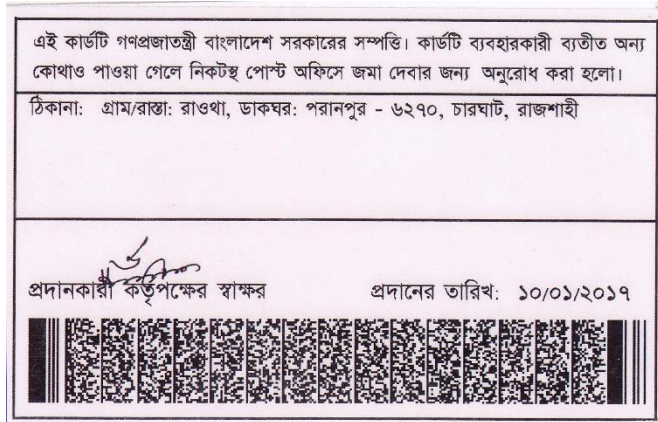 এই কার্ডটি গণপ্রজাতন্ত্রী বাংলাদেশ সরকারের সম্পত্তি। কার্ডটি ব্যবহারকারী ব্যতীত অন্য
কোথাও পাওয়া গেলে নিকটস্থ পোস্ট অফিসে জমা দেবার জন্য অনুরোধ করা হলো।
ঠিকানা: গ্রাম/রাস্তা: রাওথা, ডাকঘর: পরানপুর - ৬২৭০, চারঘাট, রাজশাহী
প্রদানকারী কর্তৃপক্ষের স্বাক্ষর প্রদানের তারিখ: ১০/০১/২০১৭